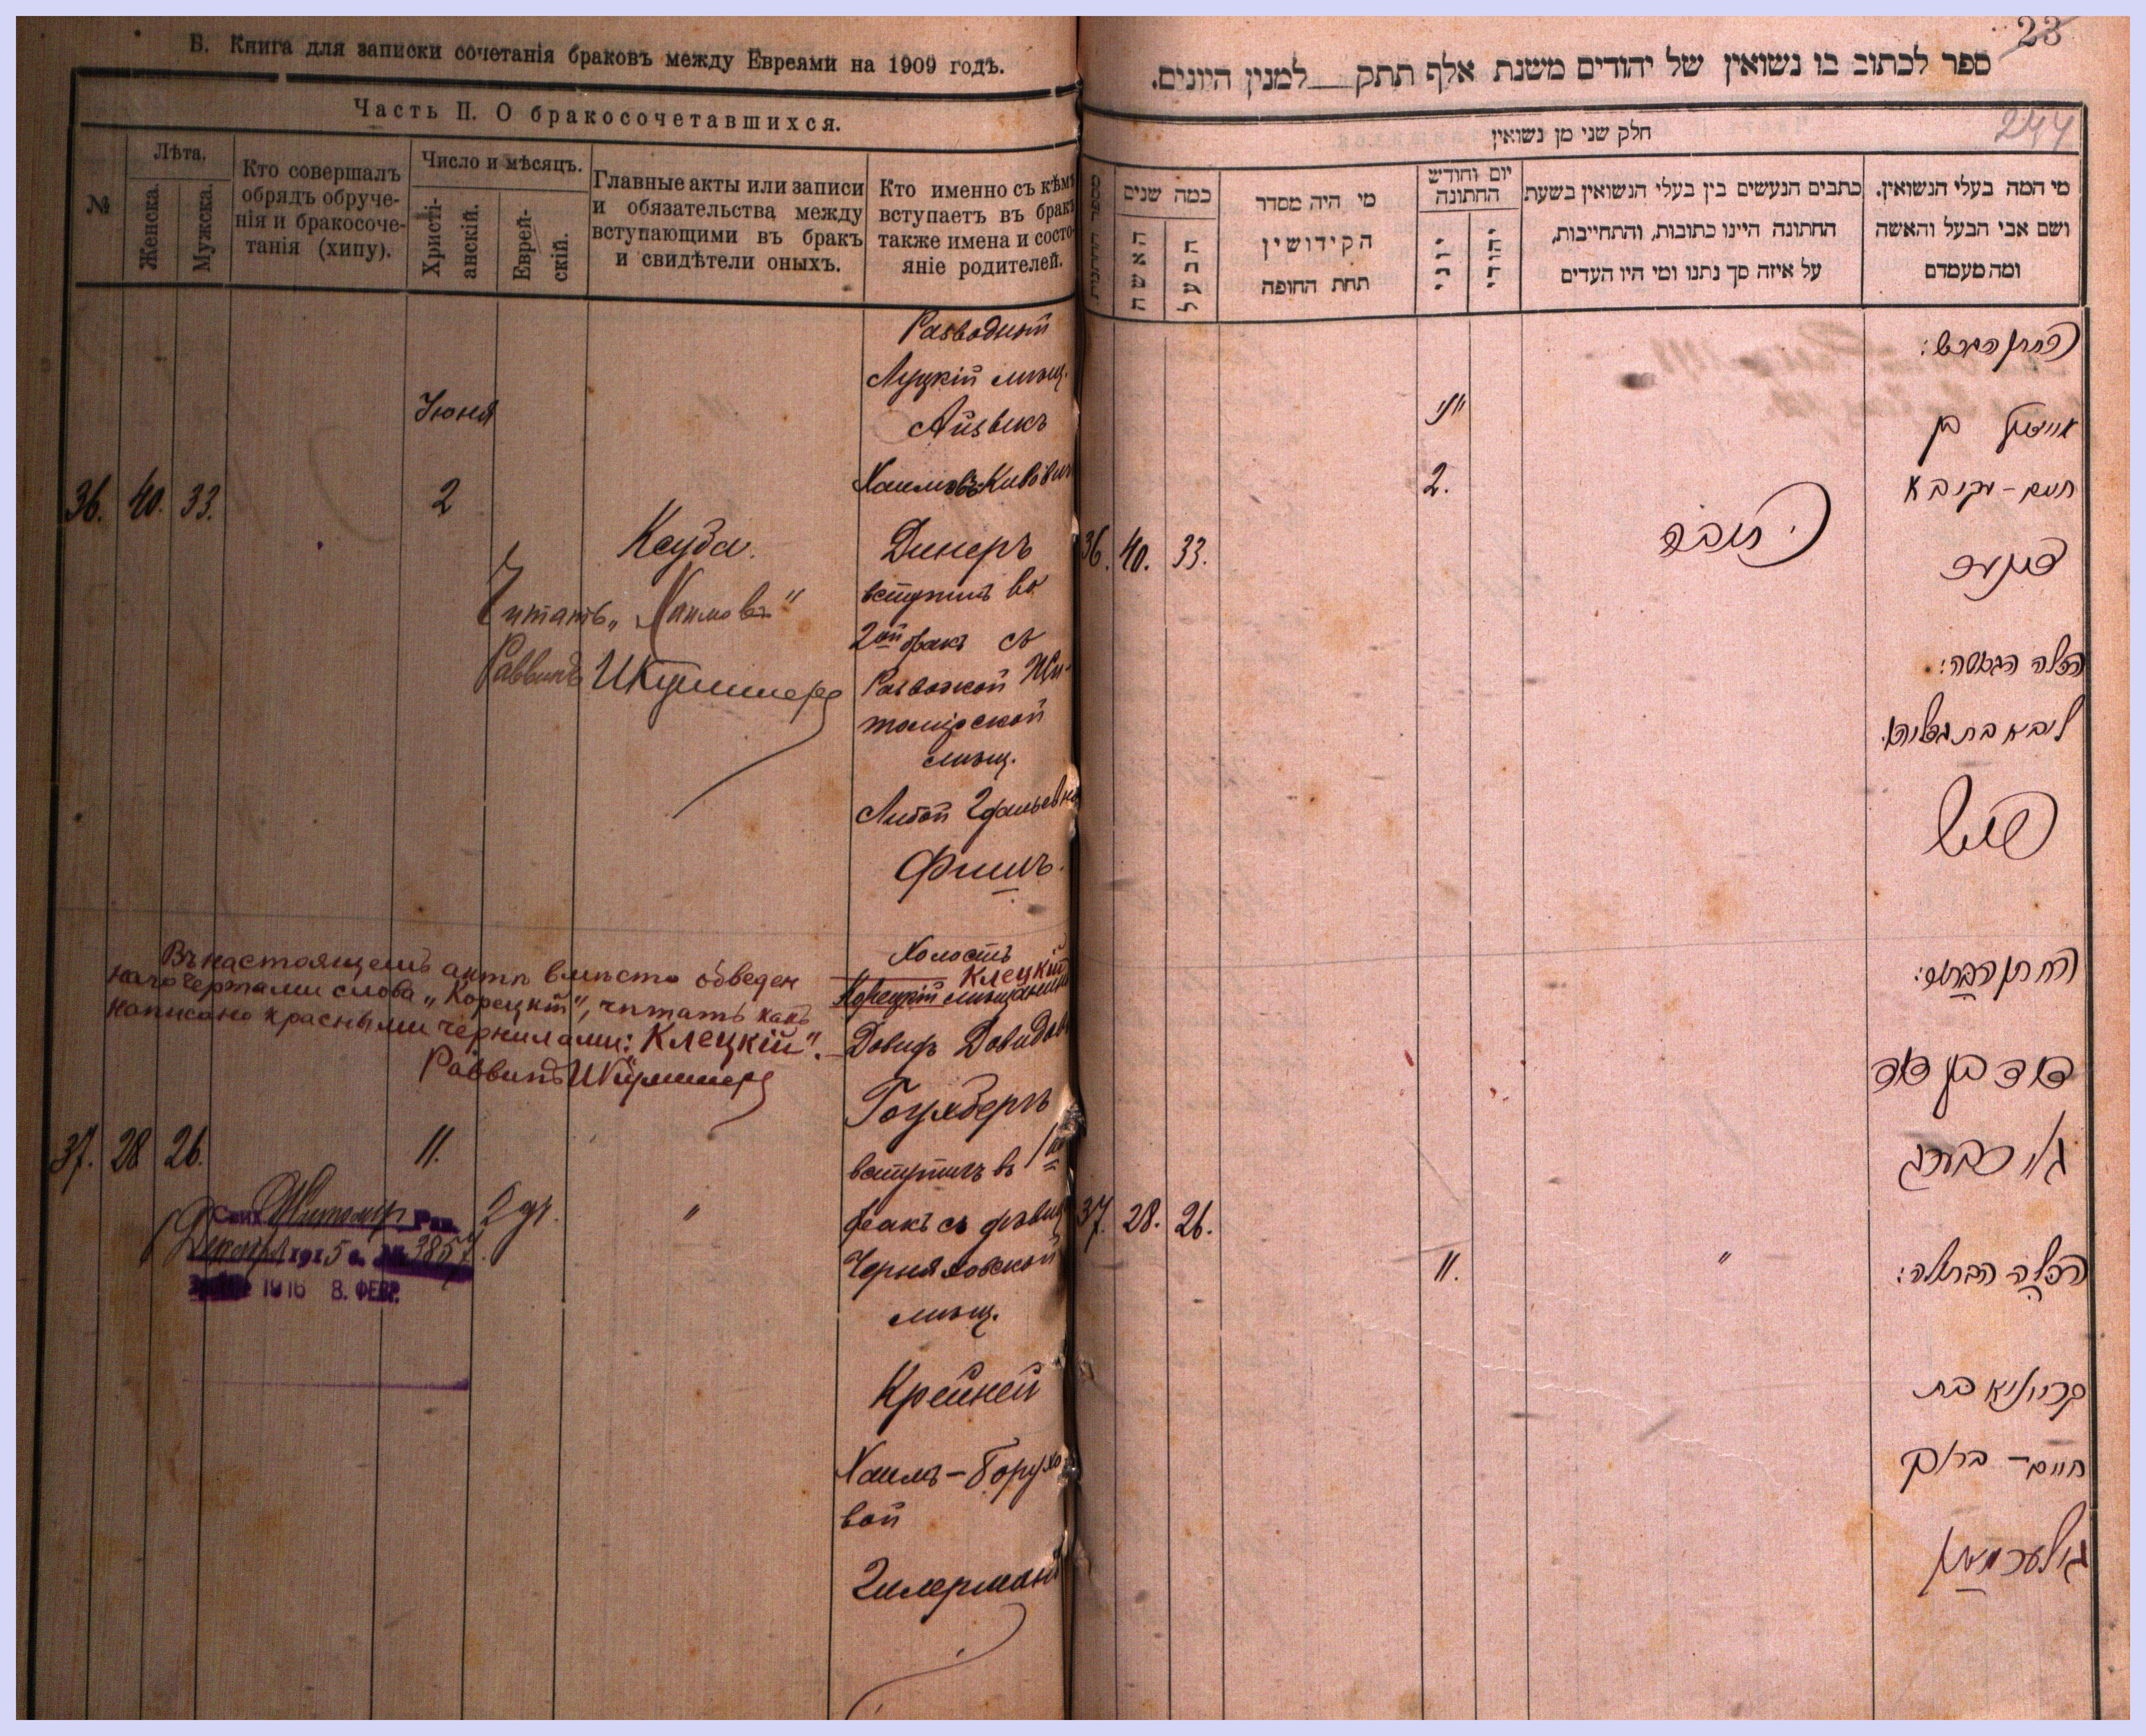 В. Книга для записки сочетанія браковъ между Евреями на 1909 годъ.
Часть II. О бракосочетавшихся.
№
Лѣта.
Женска.
Мужска.
Кто совершалъ
обрядъ обруче-
нія и бракосоче-
танія (хипу).
Число и мѣсяцъ.
Христі-
анскій.
Еврей-
скій.
Главные акты или записи
и обязательства между
вступающими въ бракъ
и свидѣтели оныхъ.
Кто именно съ кѣмъ
вступаетъ въ бракъ
также имена и состо-
яніе родителей.
Разводный
Луцкій мѣщ.
Іюня
Айзикъ
Хаимовъ-Кивовичъ
36. 40. 33. 2
Ксуба.
Динеръ
Читать „Хаимовъ"
вступилъ во
2ой бракъ съ
Раввинъ
Разводкой Жи-
томірской
мѣщ.
Либой Гдальевной
Фишъ.
Холостъ
Клецкій
Корецкій мѣщанинъ
Въ настоящемъ актѣ вмѣсто обведен
наго чертами слова „Корецкій", читать какъ
написано красными чернилами: „Клецкій".
Раввинъ
Довидъ Довидовъ
Гольдбергъ
37. 28 26. 11.
вступилъ въ 1ый
бракъ съ дѣвиц
2 др. "
Житомір Рав.
Декабря 1915 г. № 3857
1916 8. ФЕВР.
Черняховской
мѣщ.
Крейней
Хаимъ-Борухо
вой
Гилерманъ
23
ספר לכתוב בו נשואין של יהודים משנת אלף תתק למנין היונים.
244
חלק שני מן נשואין
כמה שנים
האשה
הבעל
מי היה מסדר
הקידושין
תחת החופה
יום וחודש
החתונה
יוני
יהודי
כתבים הנעשים בין בעלי הנשואין בשעת
החתונה היינו כתובות, והתחייבות,
על איזה סך נתנו ומי היו העדים
מי המה בעלי הנשואין,
ושם אבי הבעל והאשה
ומה מעמדם
החתן הגרוש:
יוני
אייזיק בן
2.
חיים-עקיבא
כתובה
36. 40. 33.
דינער
הכלה הגרושה:
ליבא בת גדליהו
פיש
החתן הבחור:
דוד בן דוד
גאלדבערג
37. 28. 26.
11. "
הכלה הבתולה:
קריינא בת
חיים-ברוך
גילערמאן